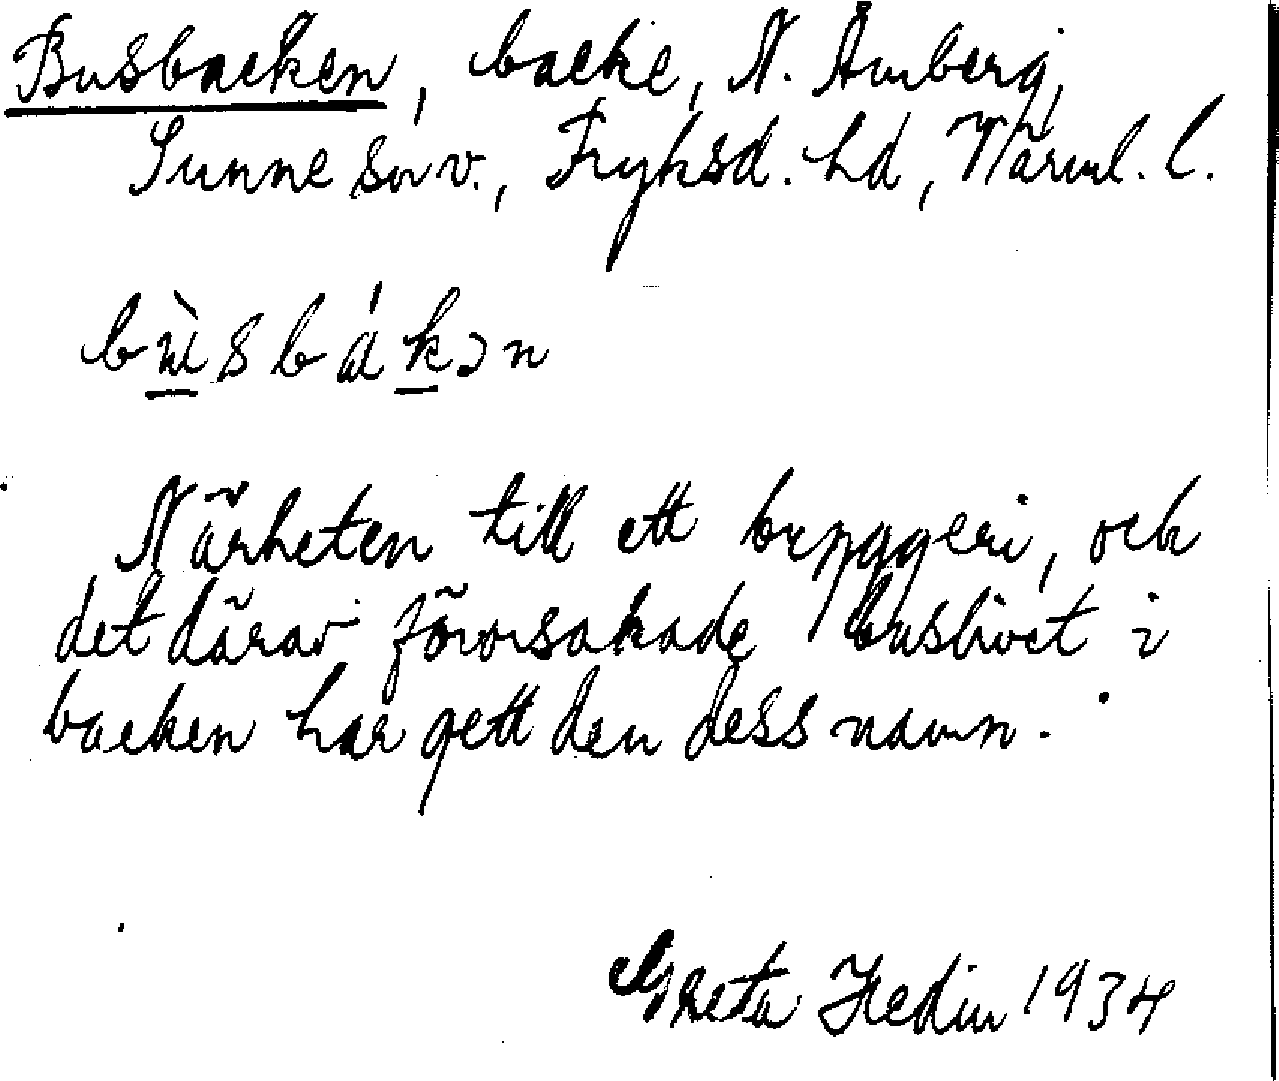 Busbacken, backe, N. Åmberg,
Sunne sn v., Fryksd. hd, Värml. l.
bùsbákən
Närheten till ett bryggeri, och
det därav förorsakade buslivet i
backen har gett den dess namn.
Greta Hedin 1934